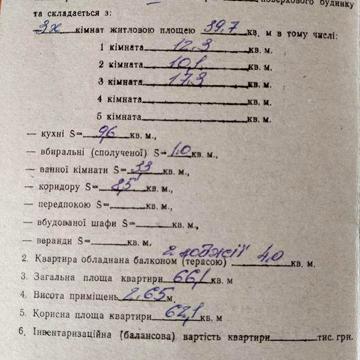 поверхового будинку
та складається з:
3х кімнат житловою площею 39.7 кв. м в тому числі:
1 кімната 12.3 кв. м.
2 кімната 10.1 кв. м.
3 кімната 17.3 кв. м.
4 кімната кв. м.
5 кімната кв. м.
— кухні S= 9,6 кв. м.,
— вбиральні (сполученої) S= 1.0 кв. м.,
— ванної кімнати S= 3,3 кв. м.,
— коридору S= 8,5 кв. м.,
— передпокою S= кв. м.,
— вбудованої шафи S= кв. м.,
— веранди S= кв. м.,
2. Квартира обладнана балконом (терасою) 2 лоджії 4,0 кв. м.
3. Загальна площа квартири 66,1 кв. м
4. Висота приміщень 2,65 м.
5. Корисна площа квартири 62,1 кв. м.
6. Інвентаризаційна (балансова) вартість квартири тис. грн.